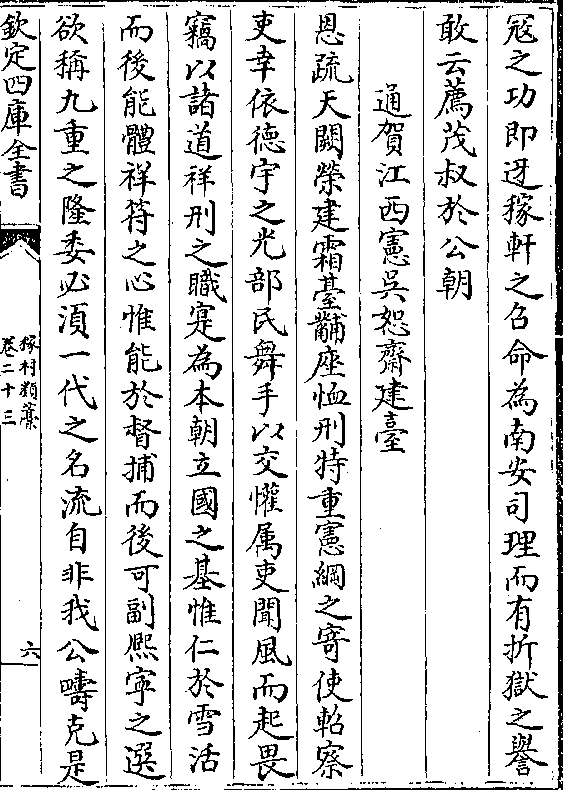 冦之功即迓稼軒之召命為南安司理而有折獄之譽
敢云薦茂叔於公朝
通賀江西憲吳恕齋建臺
恩疏天闕榮建霜臺黼座恤刑特重憲綱之寄使軺察
吏幸依徳宇之光部民舞手以交懽属吏聞風而起畏
竊以諸道祥刑之職寔為本朝立國之基惟仁於雪活
而後能體祥符之心惟能於督捕而後可副熈寜之選
欲稱九重之隆委必湏一代之名流自非我公疇克是
欽定四庫全書
稼村類藁
卷二十三
六